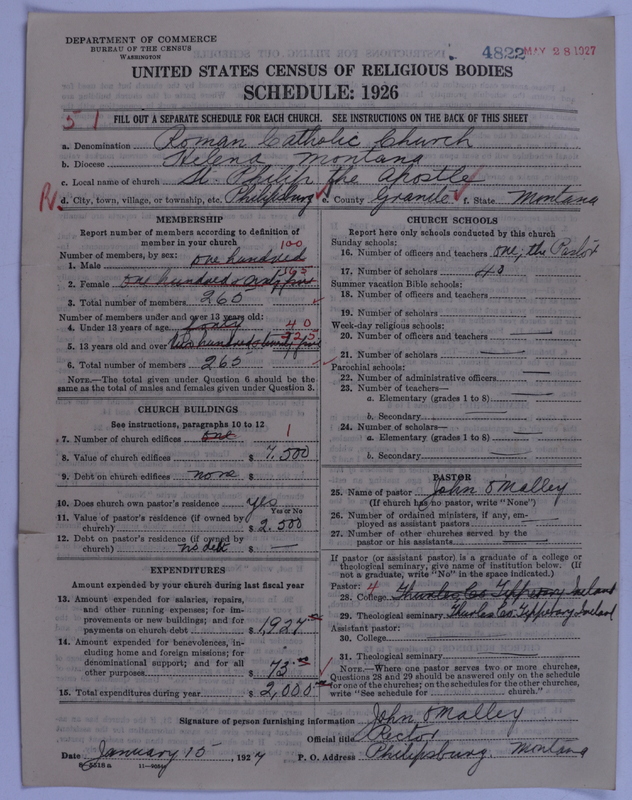 DEPARTMENT OF COMMERCE
BUREAU OF THE CENSUS
WASHINGTON
4822 MAY 28 1927
UNITED STATES CENSUS OF RELIGIOUS BODIES
SCHEDULE: 1926
51
FILL OUT A SEPARATE SCHEDULE FOR EACH CHURCH. SEE INSTRUCTIONS ON THE BACK OF THIS SHEET
a. Denomination Roman Catholic Church
b. Diocese Helena Montana
c. Local name of church St Philip the Apostle
R d. City, town, village, or township, etc. Philipsburg e. County Granite f. State Montana
MEMBERSHIP
Report number of members according to definition of
member in your church
Number of members, by sex: 100
1. Male one hundred
165
2. Female one hundred & sixty five
3. Total number of members 265
Number of members under and over 13 years old:
4. Under 13 years of age forty 40
5. 13 years old and over two hundred & twenty five 225
6. Total number of members 265
NOTE.—The total given under Question 6 should be the
same as the total of males and females given under Question 3.
CHURCH BUILDINGS
See instructions, paragraphs 10 to 12
7. Number of church edifices one 1
8. Value of church edifices $ 7.500
9. Debt on church edifices none $
10. Does church own pastor's residence yes
Yes or No
11. Value of pastor's residence (if owned by
church) $ 2.500
12. Debt on pastor's residence (if owned by
church) no debt $ —
EXPENDITURES
Amount expended by your church during last fiscal year
13. Amount expended for salaries, repairs,
and other running expenses; for im-
provements or new buildings; and for
payments on church debt $ 1,927
14. Amount expended for benevolences, in-
cluding home and foreign missions; for
denominational support; and for all
other purposes $ 73
15. Total expenditures during year $ 2,000
CHURCH SCHOOLS
Report here only schools conducted by this church
Sunday schools:
16. Number of officers and teachers one, the Pastor
17. Number of scholars 40
Summer vacation Bible schools:
18. Number of officers and teachers
19. Number of scholars
Week-day religious schools:
20. Number of officers and teachers —
21. Number of scholars —
Parochial schools:
22. Number of administrative officers —
23. Number of teachers—
a. Elementary (grades 1 to 8) —
b. Secondary —
24. Number of scholars—
a. Elementary (grades 1 to 8) —
b. Secondary —
PASTOR
25. Name of pastor John O'Malley
(If church has no pastor, write "None")
26. Number of ordained ministers, if any, em-
ployed as assistant pastors —
27. Number of other churches served by the
pastor or his assistants —
If pastor (or assistant pastor) is a graduate of a college or
theological seminary, give name of institution below. (If
not a graduate, write "No" in the space indicated.)
Pastor: 4
28. College Thurles Co. Tipperary Ireland
29. Theological seminary Thurles Co. Tipperary Ireland
Assistant pastor:
30. College
31. Theological seminary —
NOTE.—Where one pastor serves two or more churches,
Questions 28 and 29 should be answered only on the schedule
for one of the churches; on the schedules for the other churches,
write "See schedule for church."
Signature of person furnishing information John O'Malley
Official title Rector
Date January 15, 1927 P. O. Address Philipsburg, Montana
8-5518 a 11-9059